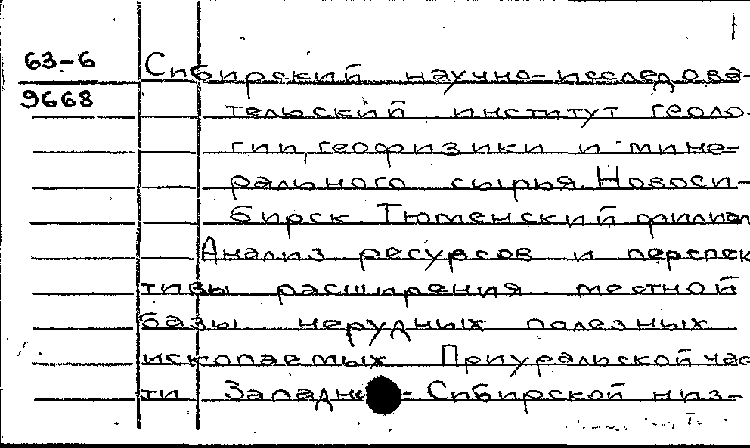 63-6 Сибирский научно-исследова-
9668 тельский институт геоло-
гии, геофизики и мине-
рального сырья. Новоси-
бирск. Тюменский филиал
Анализ ресурсов и перспек
тивы расширения местной
базы нерудных полезных
ископаемых Приуральской час
ти Западно-Сибирской низ-